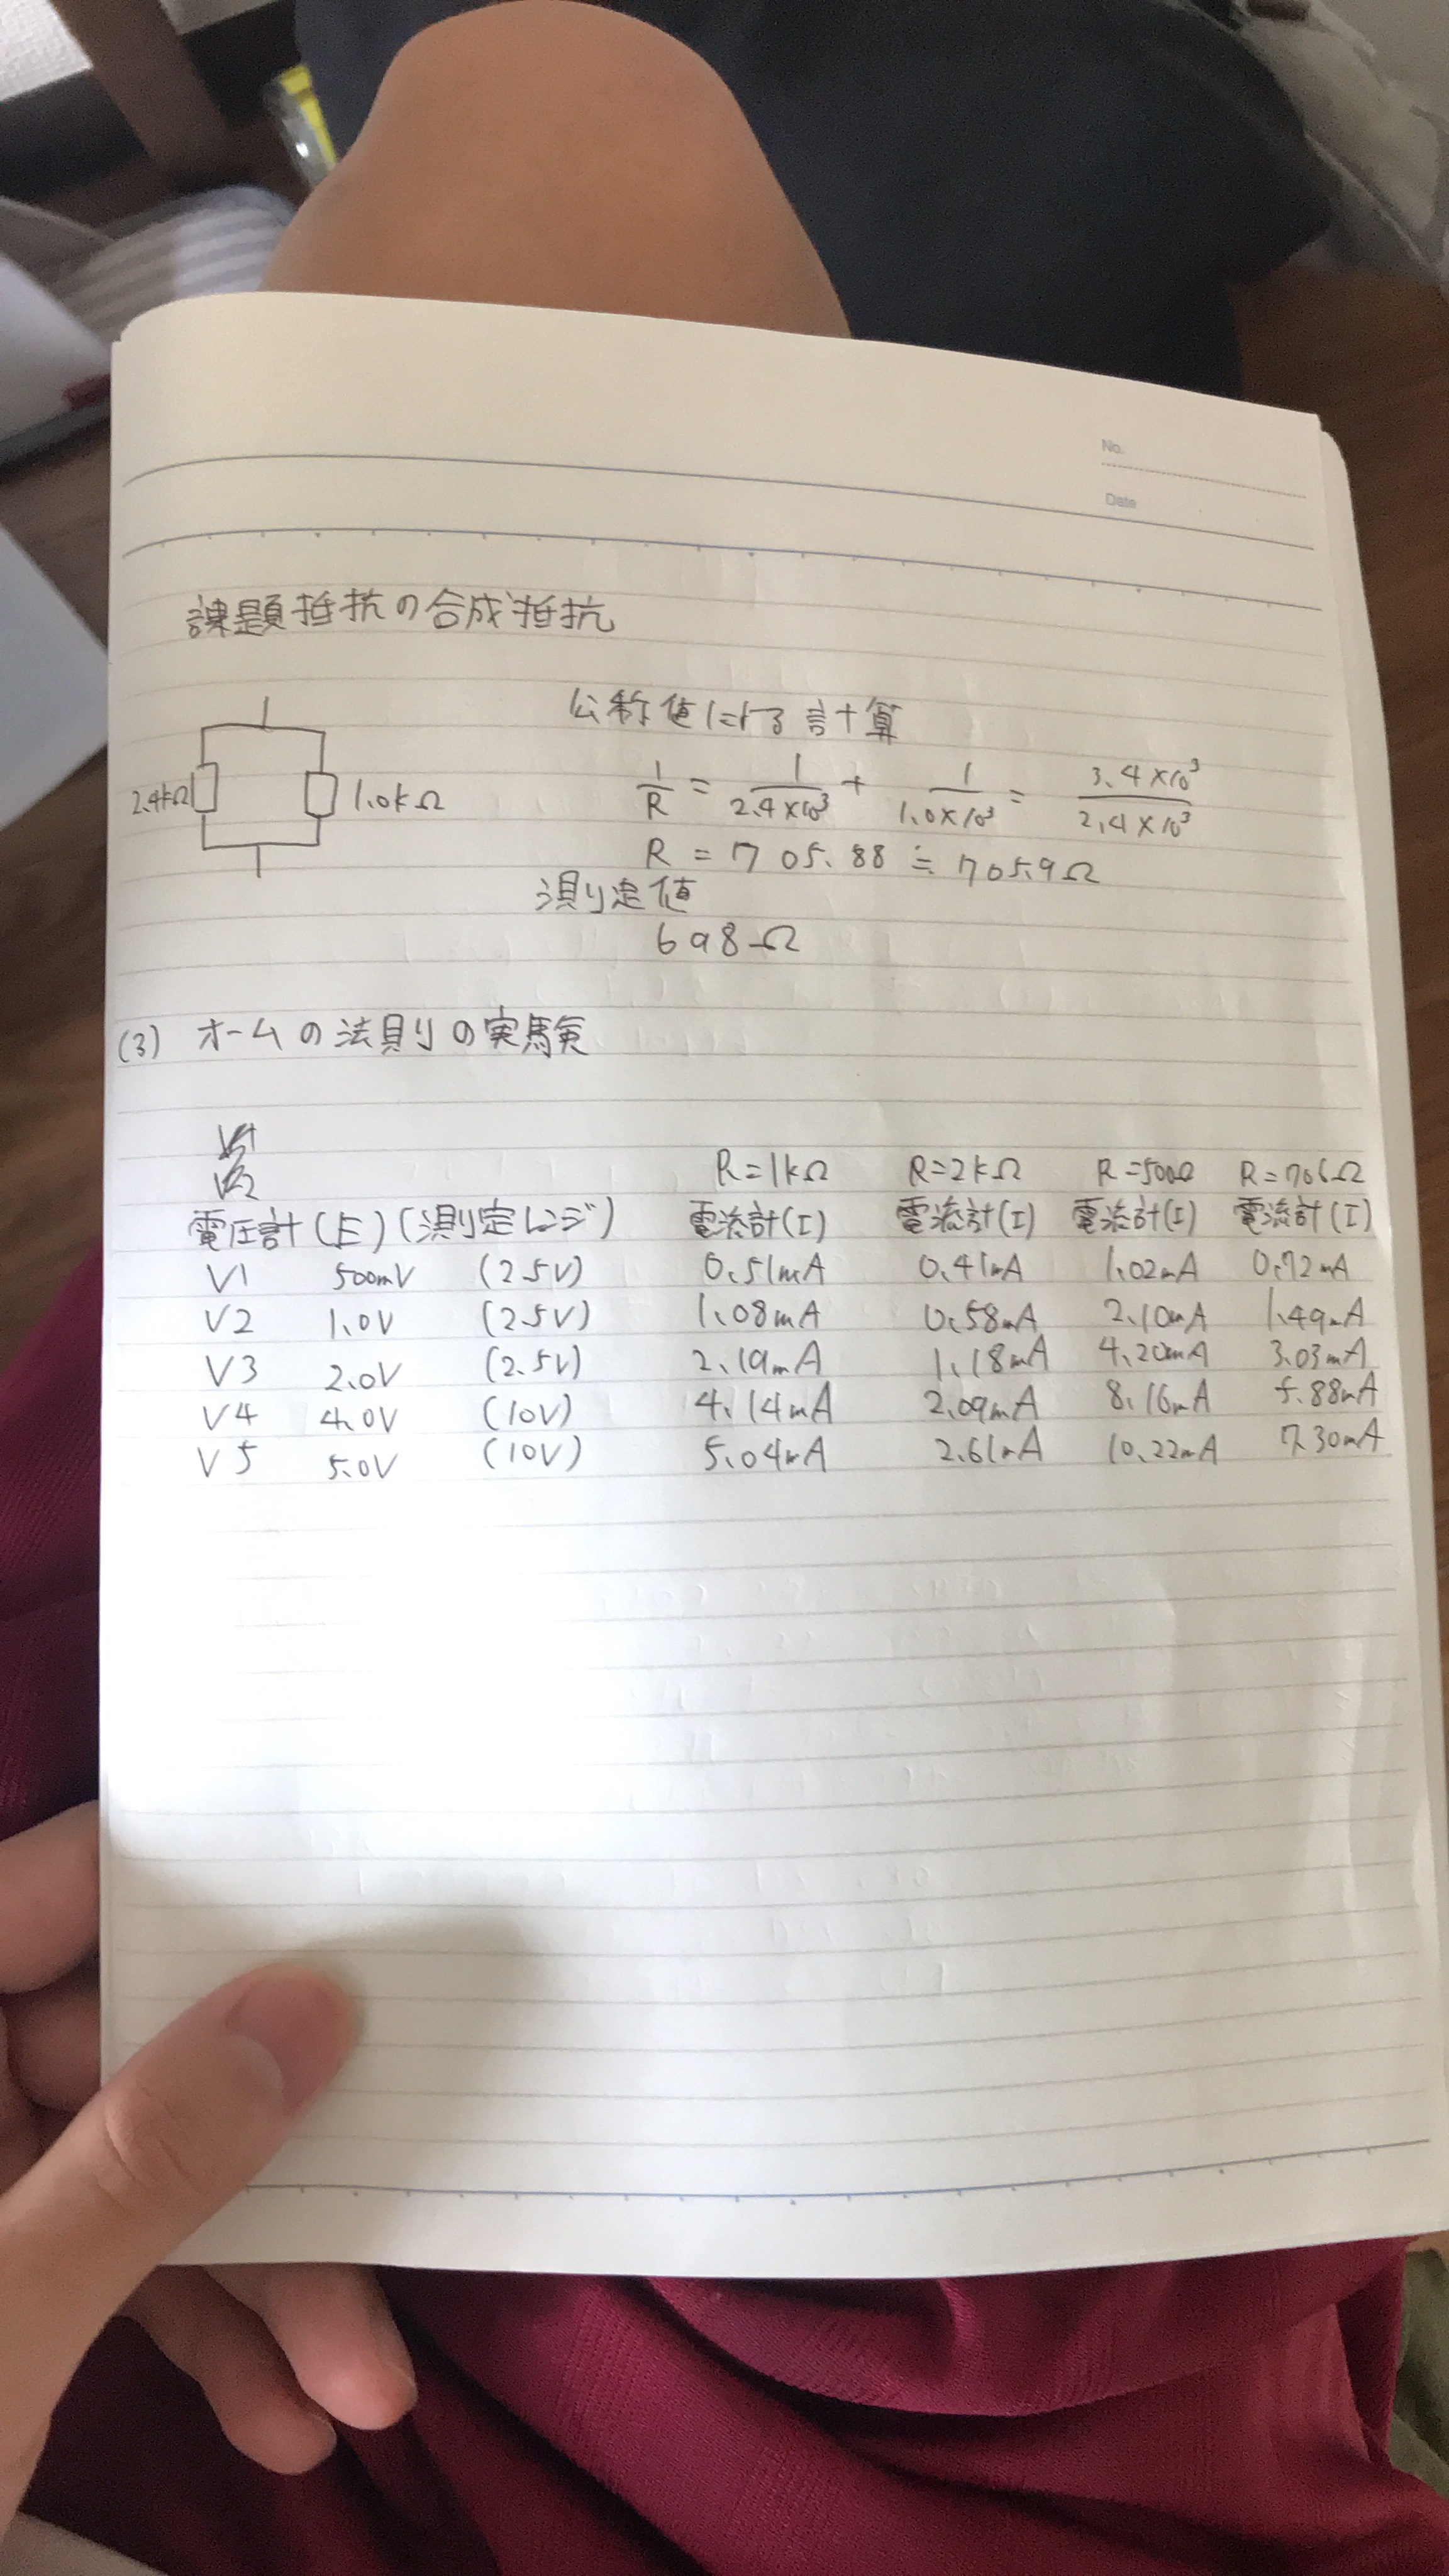 No.
Date
課題抵抗の合成抵抗
公称値による計算
2.4kΩ 1.0kΩ 1/R = 1/2.4×10³ + 1/1.0×10³ = 3.4×10³/2.4×10³
R = 705.88 ≒ 705.9Ω
測定値
698Ω
(3) オームの法則の実験
R=1kΩ R=2kΩ R=500Ω R=706Ω
電圧計(E)(測定レンジ) 電流計(I) 電流計(I) 電流計(I) 電流計(I)
V1 500mV (2.5V) 0.51mA 0.41mA 1.02mA 0.72mA
V2 1.0V (2.5V) 1.08mA 0.58mA 2.10mA 1.49mA
V3 2.0V (2.5V) 2.19mA 1.18mA 4.20mA 3.03mA
V4 4.0V (10V) 4.14mA 2.09mA 8.16mA 5.88mA
V5 5.0V (10V) 5.04mA 2.61mA 10.22mA 7.30mA